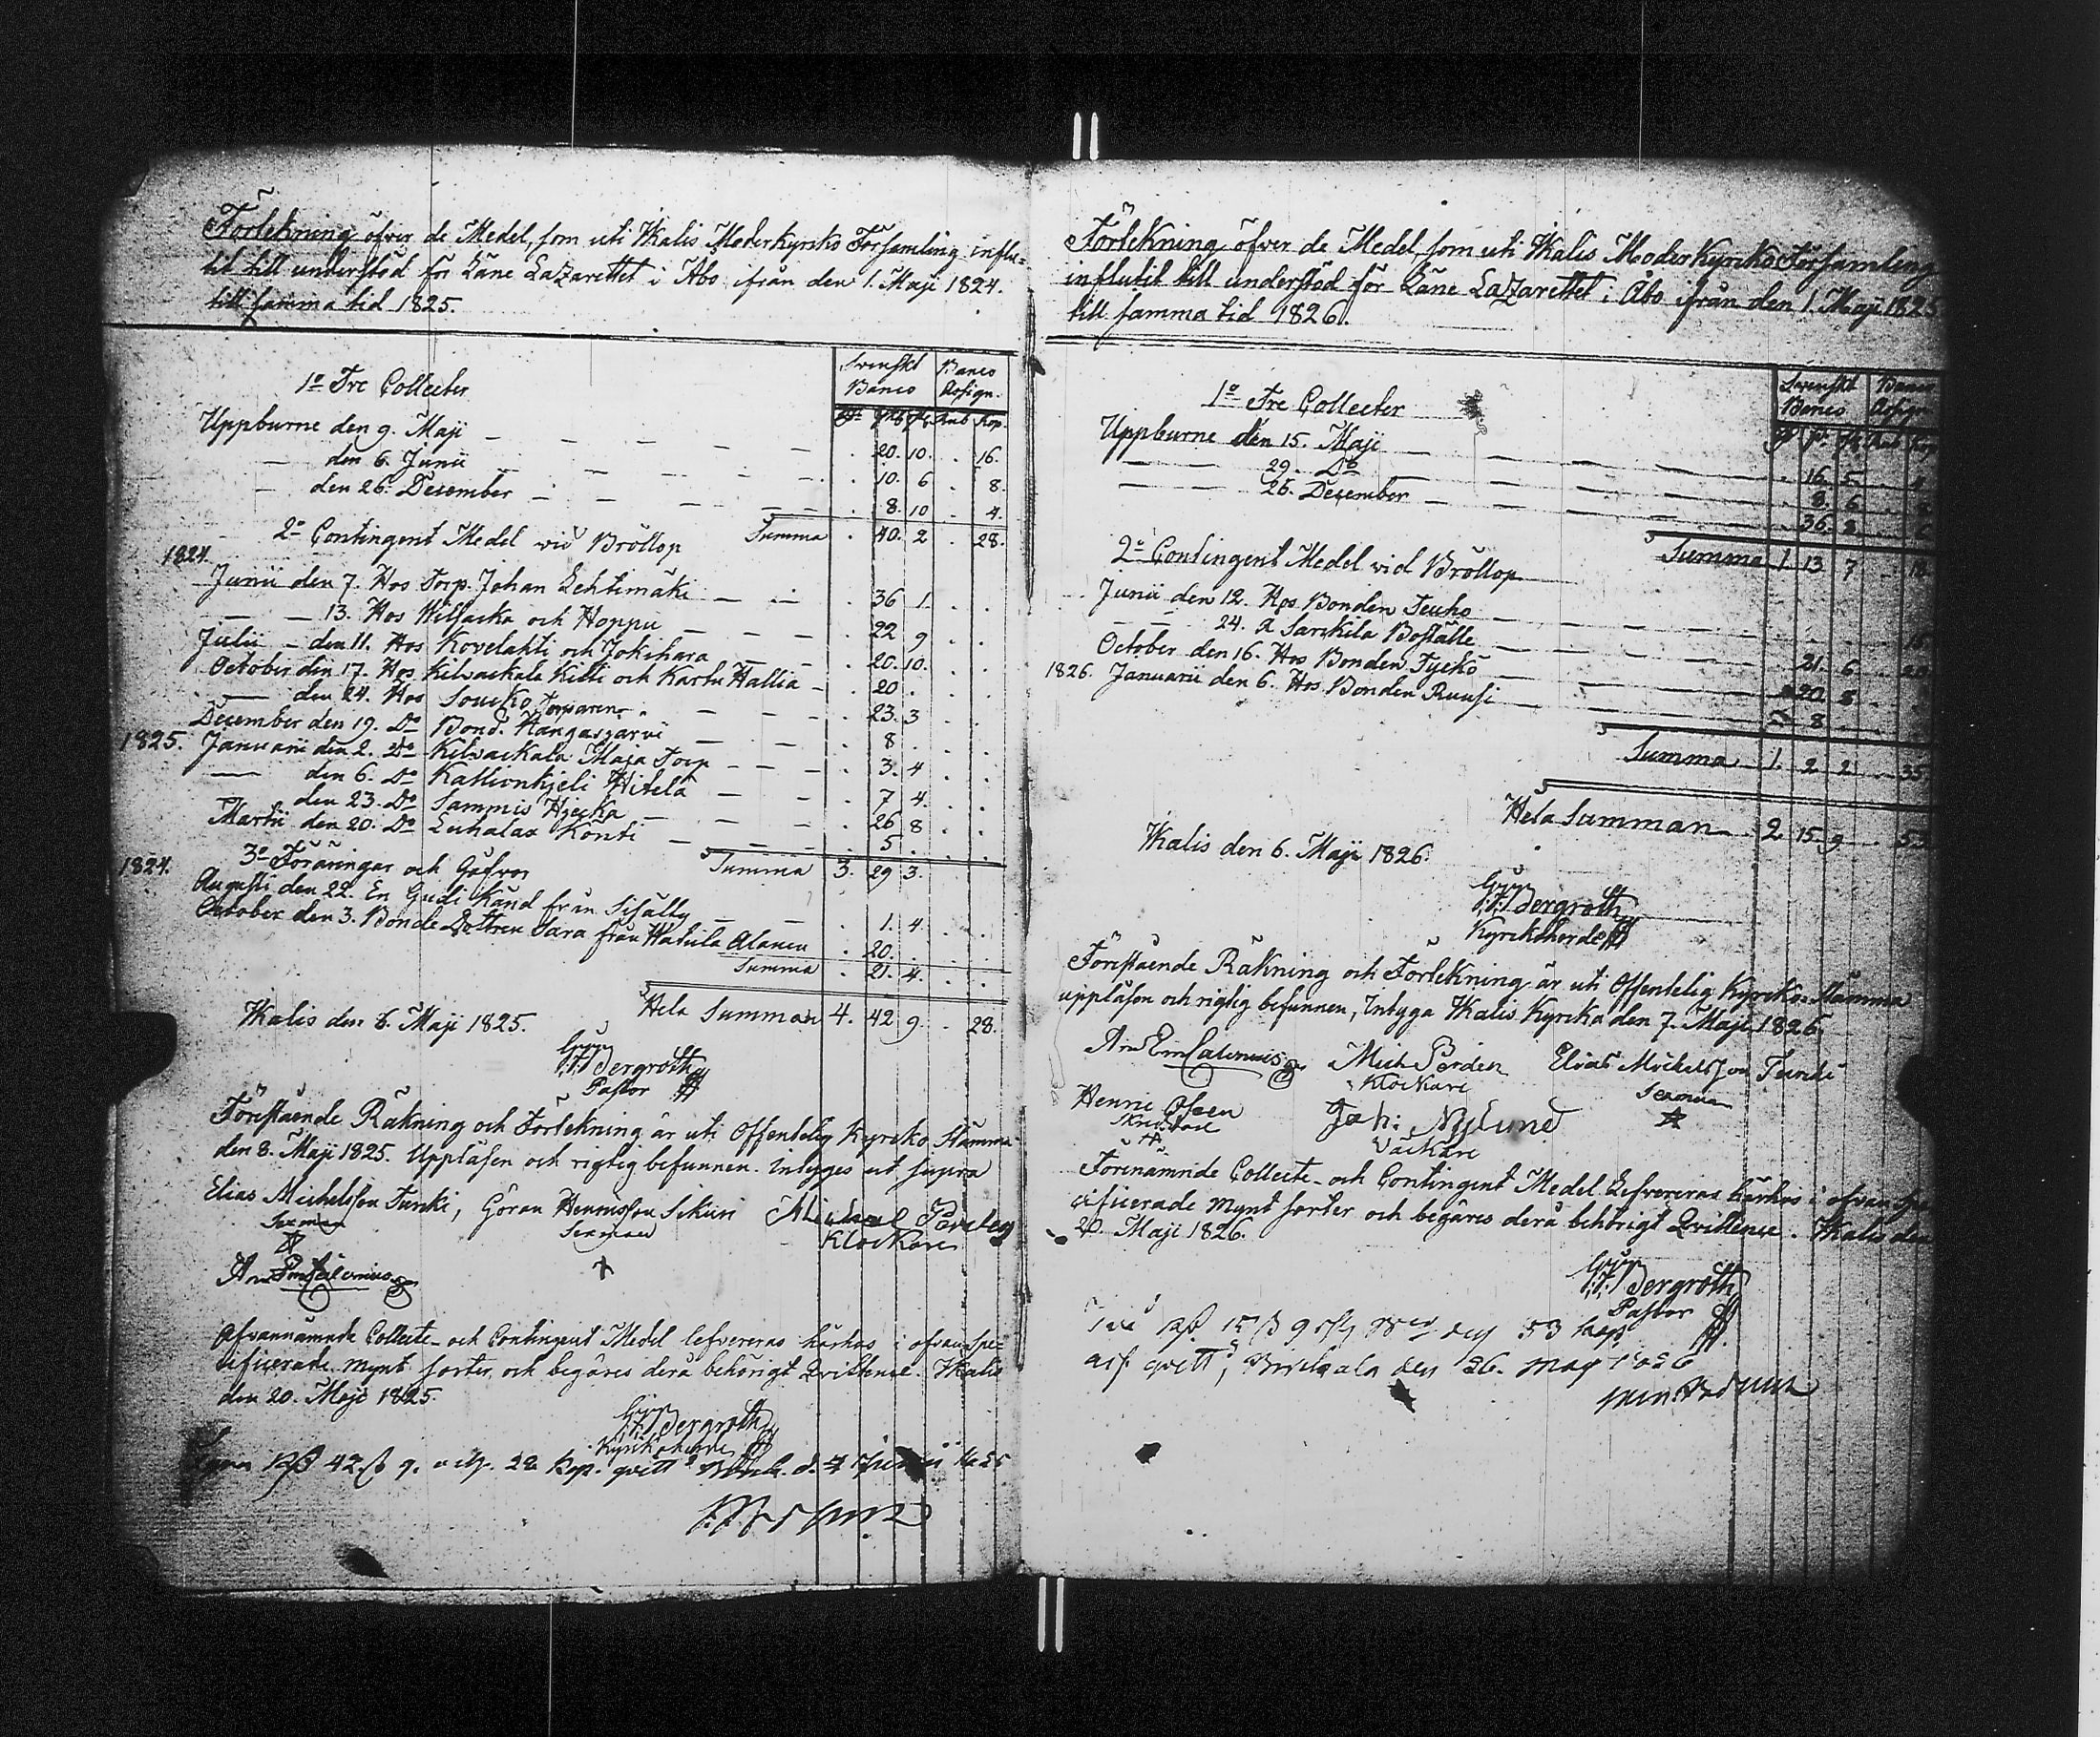 Förtekning öfver de Medel, som uti Ikalis Moderkyrko Församling influ=
tit till understöd för Läns Lazarettet i Åbo ifrån den 1. Maji 1824.
till samma tid 1825.
Svenskt Banco
Banco Assign.
Rub Kop.
1o Tre Collecter
Uppburne den 9. Maji — . 20. 10. . 16.
— den 6. Junii — . 10. 6 . 8.
— den 26. December — . 8. 10 . 4.
Summa . 40. 2 . 28.
2o Contingent Medel vid Bröllop
1824.
Junii den 7. Hos Torp. Johan Lehtimäki — . 36 1. . .
— 13. Hos Wilfacka och Hoppu — . 22 9 . .
Julii — den 11. Hos Kovelahti och Jokihara — . 20. 10. . .
October den 17. Hos Kilvackala Kitti och Kartu Hallia — . 20 . . .
— den 24. Hos Soucko Torparen — . 23. 3 . .
December den 19. Do Bond. Kangasjarvi — . 8 . . .
1825. Januarii den 2. Do Kilvackala Maja Torp — . 3. 4 . .
— den 6. Do Kallionkjeli Hitela — . 7 4. . .
den 23. Do Sammis Hjecka — . 26 8 . .
Martii den 20. Do Luhalax Konti — . 5 . . .
Summa 3. 29 3. . .
3o Föräringar och Gåfvor
1824.
Augusti den 22. En Gudi Känd från Sisätty — . 1. 4 . .
October den 3. Bonde Dottren Sara från Hatula Alanen . 20. . . .
Summa . 21. 4. . .
Hela Summan 4. 42 9. . 28.
Ikalis den 6. Maji 1825.
Bergroth
Pastor
Förestående Räkning och Förtekning är uti Offentelig Kyrko Stämma
den 8. Maji 1825. Uppläsen och rigtig befunnen. intygges ut supra
Elias Michelsson Turcki, Göran Henricsson Sikuri Michael Pärden
Sexman Sexman Klockare
Ofvannämnde Collecte- och Contingent Medel lefvereras härhos i ofvanspe=
cificerade mynt sorter, och begäres derå behörigt Qvittence. Ikalis
den 20. Maji 1825.
Bergroth
Kyrkoherde
42 9. 28 Kop. qvitt
Förtekning öfver de Medel, som uti Ikalis Moder Kyrko Församling
influtit till understöd för Läns Lazarettet i Åbo ifrån den 1. Maji 1825
till samma tid 1826.
Svenskt Banco
1o Tre Collecter
Uppburne den 15. Maji — . 16. 5.
— 29. Do — . 8. 6
— 26. December — . 36. 8
Summa 1 13 7 . 18
2o Contingent Medel vid Bröllop
Junii den 12. Hos Bonden Teuho — 15
— 24. å Sarkila Boställe — 21. 6 . 20
October den 16. Hos Bonden Tycko — 20 8
1826. Januarii den 6. Hos Bonden Ruusi — 8
Summa 1. 2 2 . 35
Hela Summan 2 15 9 . 53
Ikalis den 6. Maji 1826.
Bergroth
Kyrkoherde
Förestående Räkning och Förtekning är uti Offentelig Kyrko-Stämma
uppläsen och rigtig befunnen, Intyga Ikalis Kyrka den 7. Maji 1826.
Mich Pärden Elias Michelsson Turcki
Klockare Sexman
Henric
Joh: Nylund
Väckare
Förenämnde Collecte- och Contingent Medel Lefvereras härhos i ofvan spe
cificerade Mynt sorter och begäres derå behörigt Qvittence. Ikalis den
20. Maji 1826.
Bergroth
Pastor
53 Kop
qvitt; Birkala den 26. May 1826